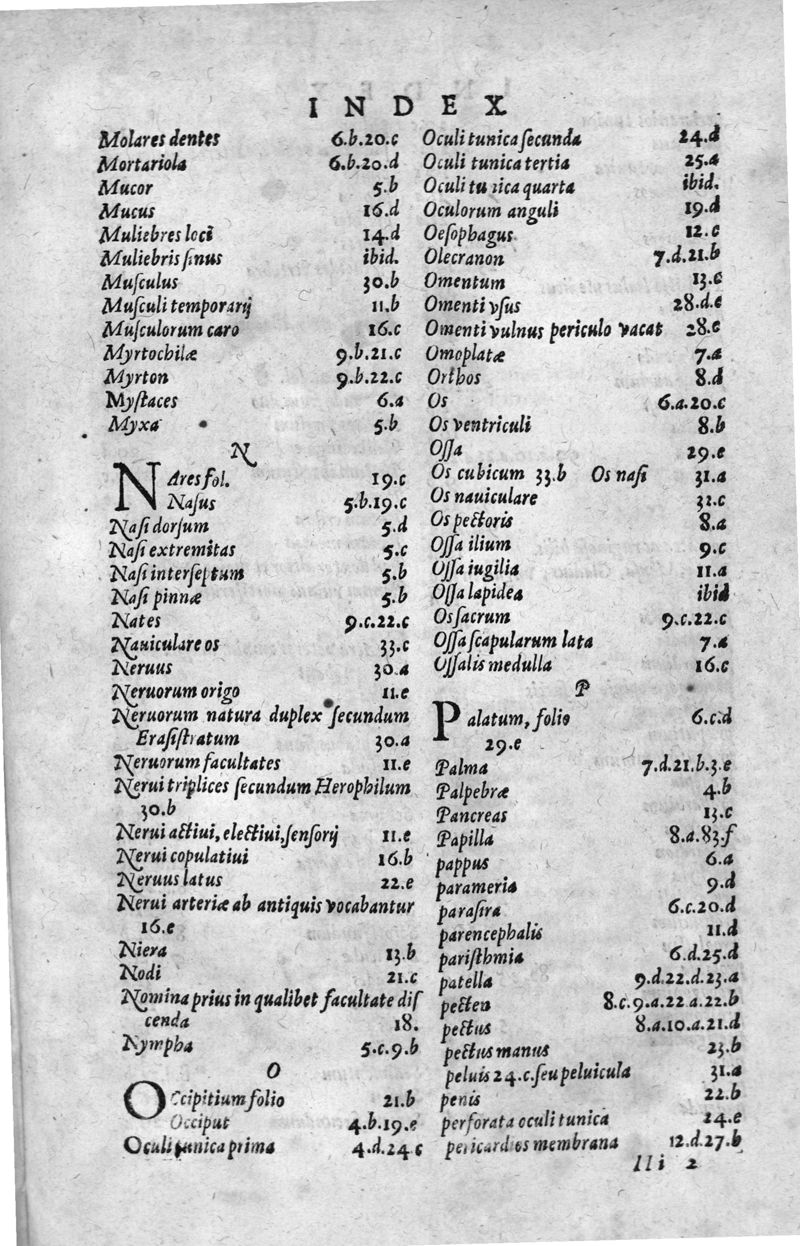 INDEX
Molares dentes 6.b.20.c
Mortariola 6.b.20.d
Mucor 5.b
Mucus 16.d
Muliebres loci 14.d
Muliebris ſinus ibid.
Muſculus 30.b
Muſculi temporarij 11.b
Muſculorum caro 16.c
Myrtochilæ 9.b.21.c
Myrton 9.b.22.c
Myſtaces 6.a
Myxa 5.b
N
NAres fol. 19.c
Naſus 5.b.19.c
Naſi dorſum 5.d
Naſi extremitas 5.c
Naſi interſeptum 5.b
Naſi pinnæ 5.b
Nates 9.c.22.c
Nauiculare os 33.c
Neruus 30.a
Neruorum origo 11.e
Neruorum natura duplex ſecundum
Eraſiſtratum 30.a
Neruorum facultates 11.e
Nerui triplices ſecundum Herophilum
30.b
Nerui actiui, electiui, ſenſorij 11.e
Nerui copulatiui 16.b
Neruus latus 22.e
Nerui arteriæ ab antiquis vocabantur
16.e
Niera 13.b
Nodi 21.c
Nomina prius in qualibet facultate diſ
cenda 18.
Nympha 5.c.9.b
O
OCcipitium folio 21.b
Occiput 4.b.19.e
Oculi tunica prima 4.d.24.c
Oculi tunica ſecunda 24.d
Oculi tunica tertia 25.a
Oculi tunica quarta ibid.
Oculorum anguli 19.d
Oeſophagus 12.c
Olecranon 7.d.21.b
Omentum 13.c
Omenti vſus 28.d.e
Omenti vulnus periculo vacat 28.e
Omoplatæ 7.a
Orthos 8.d
Os 6.a.20.c
Os ventriculi 8.b
Oſſa 29.e
Os cubicum 33.b Os naſi 31.a
Os nauiculare 32.c
Os pectoris 8.a
Oſſa ilium 9.c
Oſſa iugilia 11.a
Oſſa lapidea ibid
Os ſacrum 9.c.22.c
Oſſa ſcapularum lata 7.a
Oſſalis medulla 16.c
P
Palatum, folio 6.c.d
29.e
Palma 7.d.21.b.3.e
Palpebræ 4.b
Pancreas 13.c
Papilla 8.a.83.f
pappus 6.a
parameria 9.d
paraſira 6.c.20.d
parencephalis 11.d
pariſthmia 6.d.25.d
patella 9.d.22.d.23.a
pecten 8.c.9.a.22 a.22.b
pectus 8.a.10.a.21.d
pectus manus 23.b
peluis 24.c.ſeu peluicula 31.a
penis 22.b
perforata oculi tunica 24.e
pericardios membrana 12.d.27.b
Ili 2